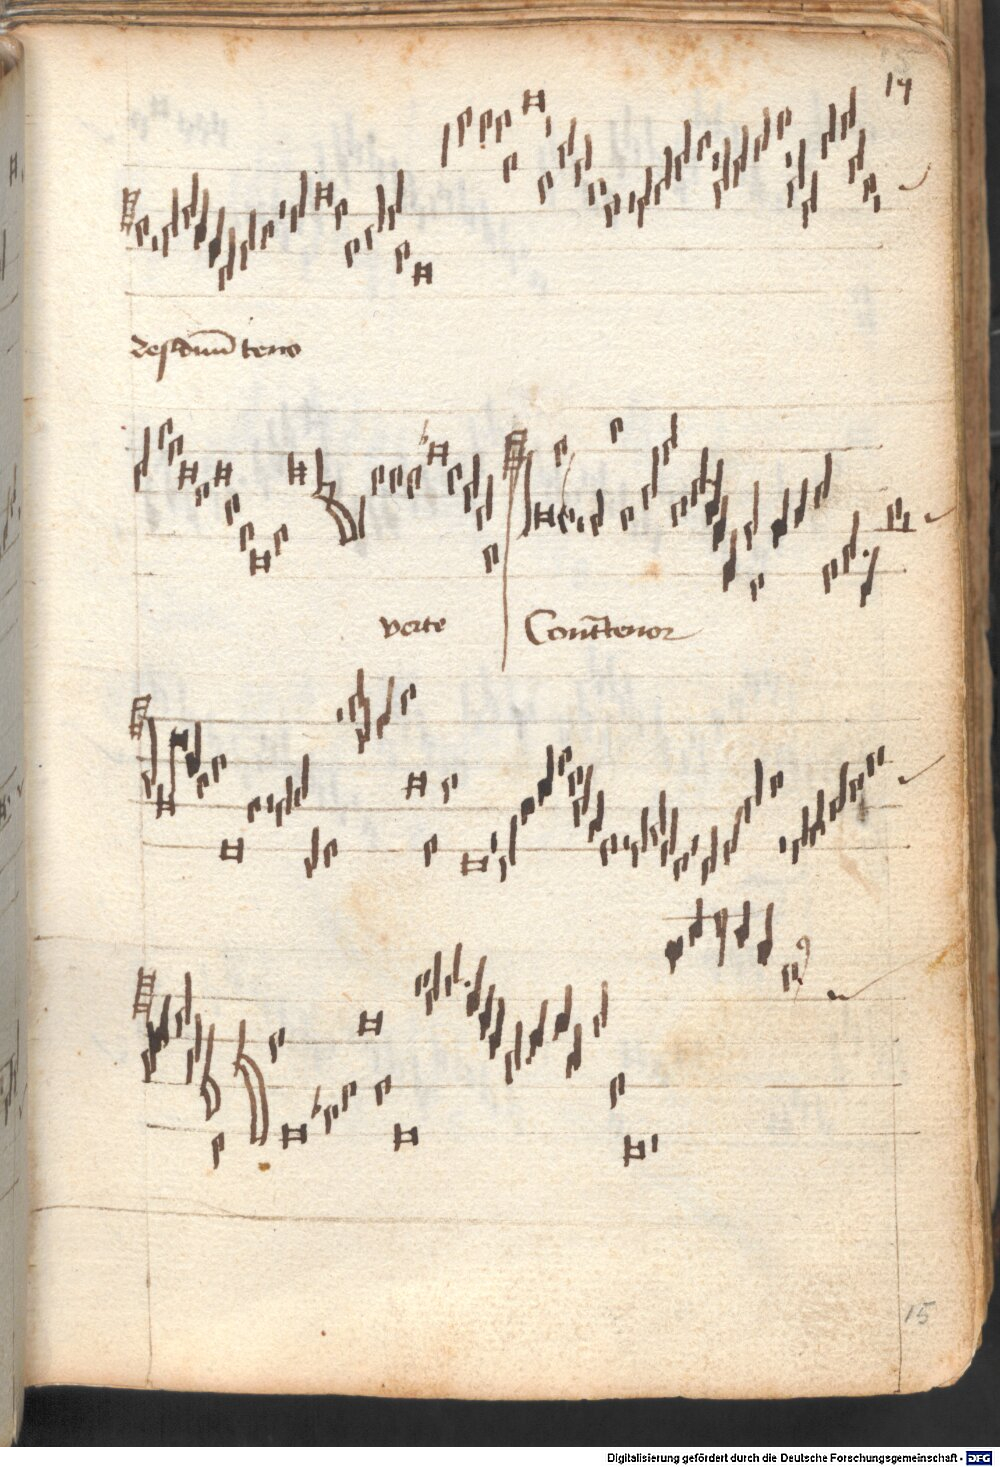 14
Residuum teno
verte Contratenor
15
Digitalisierung gefördert durch die Deutsche Forschungsgemeinschaft - DFG